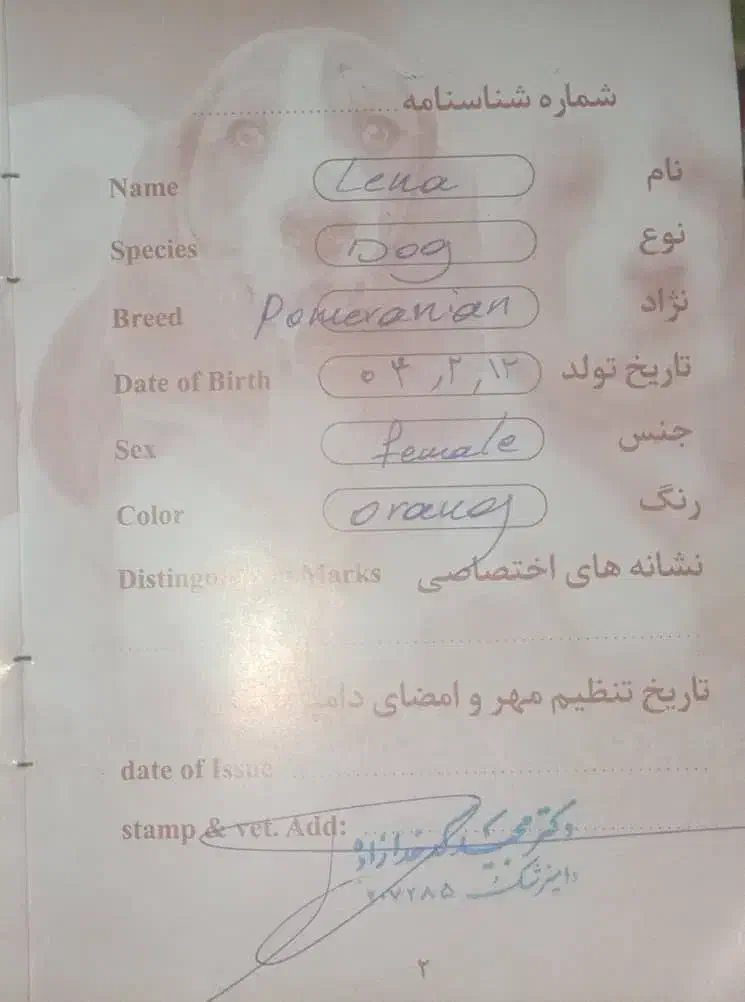 شماره شناسنامه ....................
Name Lena نام
Species Dog نوع
Breed Pomeranian نژاد
Date of Birth ۰۴,۲,۱۲ تاریخ تولد
Sex female جنس
Color orang رنگ
Marks نشانه های اختصاصی
تاریخ تنظیم مهر و امضای
date of Issue
stamp & vet. Add: دکتر
دامپزشک
۲